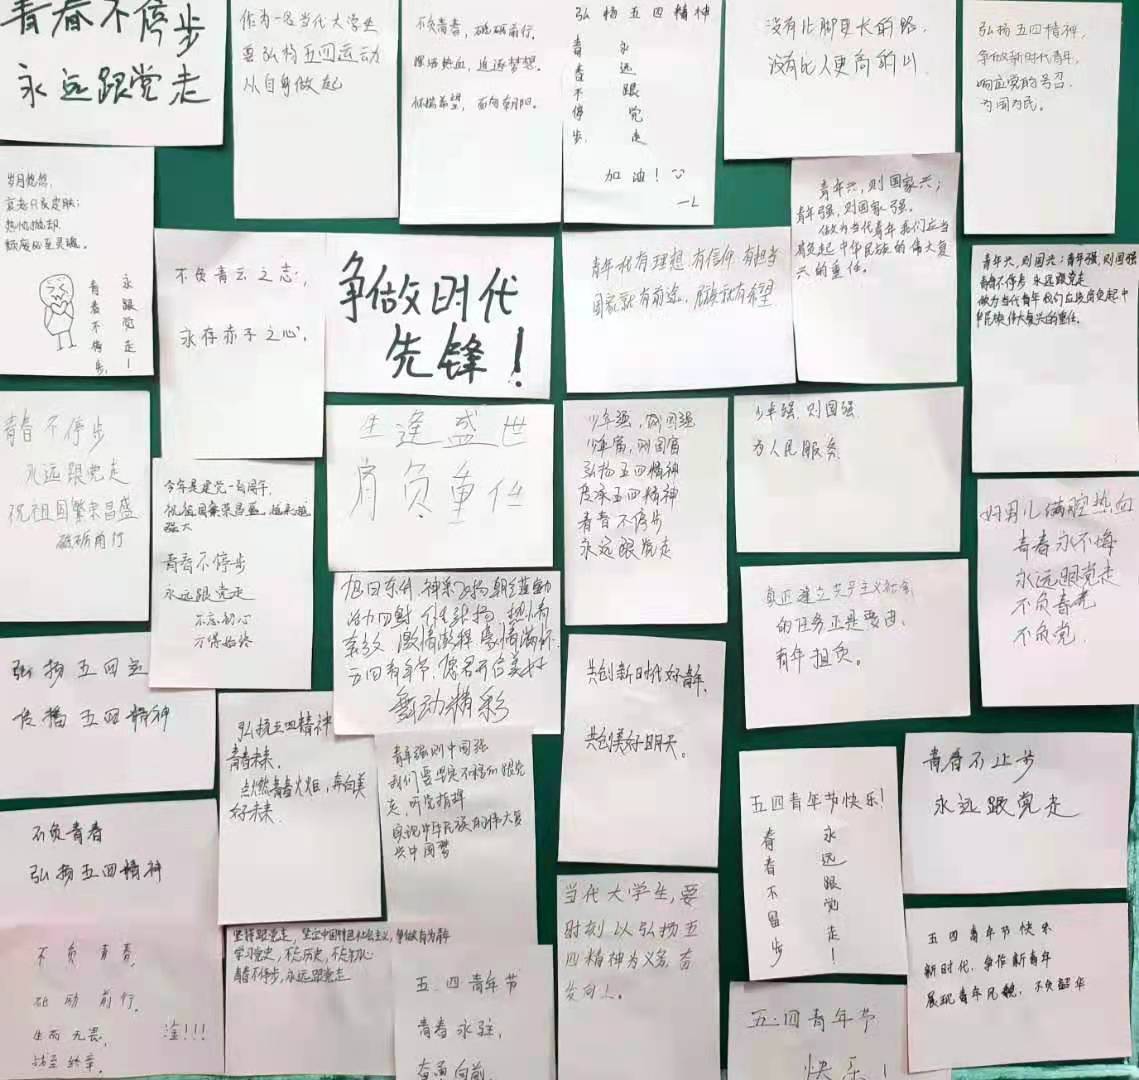 青春不停步
永远跟党走
作为一名当代大学生
要弘扬五四运动
从自身做起
不负青春，砥砺前行。
挥洒热血，追逐梦想。
怀揣希望，面向朝阳。
弘扬五四精神
青春不停步，
永远跟党走
加油！
—L
没有比脚更长的路，
没有比人更高的山。
弘扬五四精神，
争做新时代青年，
响应党的号召，
为国为民。
岁月悠悠，
衰老只及皮肤；
热忱抛却，
颓废必至灵魂。
青春不停步，
永跟党走！
不负青云之志；
永存赤子之心。
争做时代
先锋！
青年一代有理想 有信仰 有担当
国家就有前途，民族就有希望
青年兴，则国家兴；
青年强，则国家强。
做为当代青年我们应当
肩负起中华民族的伟大复
兴的重任。
青年兴，则国兴；青年强，则国强
青春不停步 永远跟党走
做为当代青年我们应该肩负起中
华民族伟大复兴的重任。
青春不停步
永远跟党走
祝祖国繁荣昌盛
砥砺前行
今年是建党一百周年，
祝祖国繁荣昌盛，越来越
强大
青春不停步
永远跟党走
不忘初心
方得始终
生逢盛世
肩负重任
少年强，则国强
少年富，则国富
弘扬五四精神
传承五四精神
青春不停步
永远跟党走
少年强，则国强
为人民服务
好男儿满腔热血
青春永不悔
永远跟党走
不负青春
不负党
旭日东升，神采飞扬，朝气蓬勃
活力四射，个性张扬，热情
奔放，激情凝释，豪情满怀
五四青年节，愿君开信美好
舞动精彩
真正建立共产主义社会
的任务正是要由
青年担负。
弘扬五四运
传播五四精神
弘扬五四精神
青春未来，
点燃青春火炬，奔向美
好未来
青年强则中国强
我们要坚定不移的跟党
走，听党指挥
实现中华民族的伟大复
兴中国梦
共创新时代好青年，
共创美好明天。
五四青年节快乐！
青春不留步
永远跟党走！
青春不止步
永远跟党走
不负青春
弘扬五四精神
不负青春，
砥砺前行，
生而无畏，
战至终章，
淦！！！
坚持跟党走，坚定中国特色社会主义，争做有为青年
学习党史，不忘历史，不忘初心
青春不停步，永远跟党走
五.四青年节
青春永驻，
奋勇向前。
当代大学生，要
时刻以弘扬五
四精神为义务，奋
发向上。
五.四青年节
快乐！
五四青年节快乐
新时代，争做新青年
展现青年风貌，不负韶华